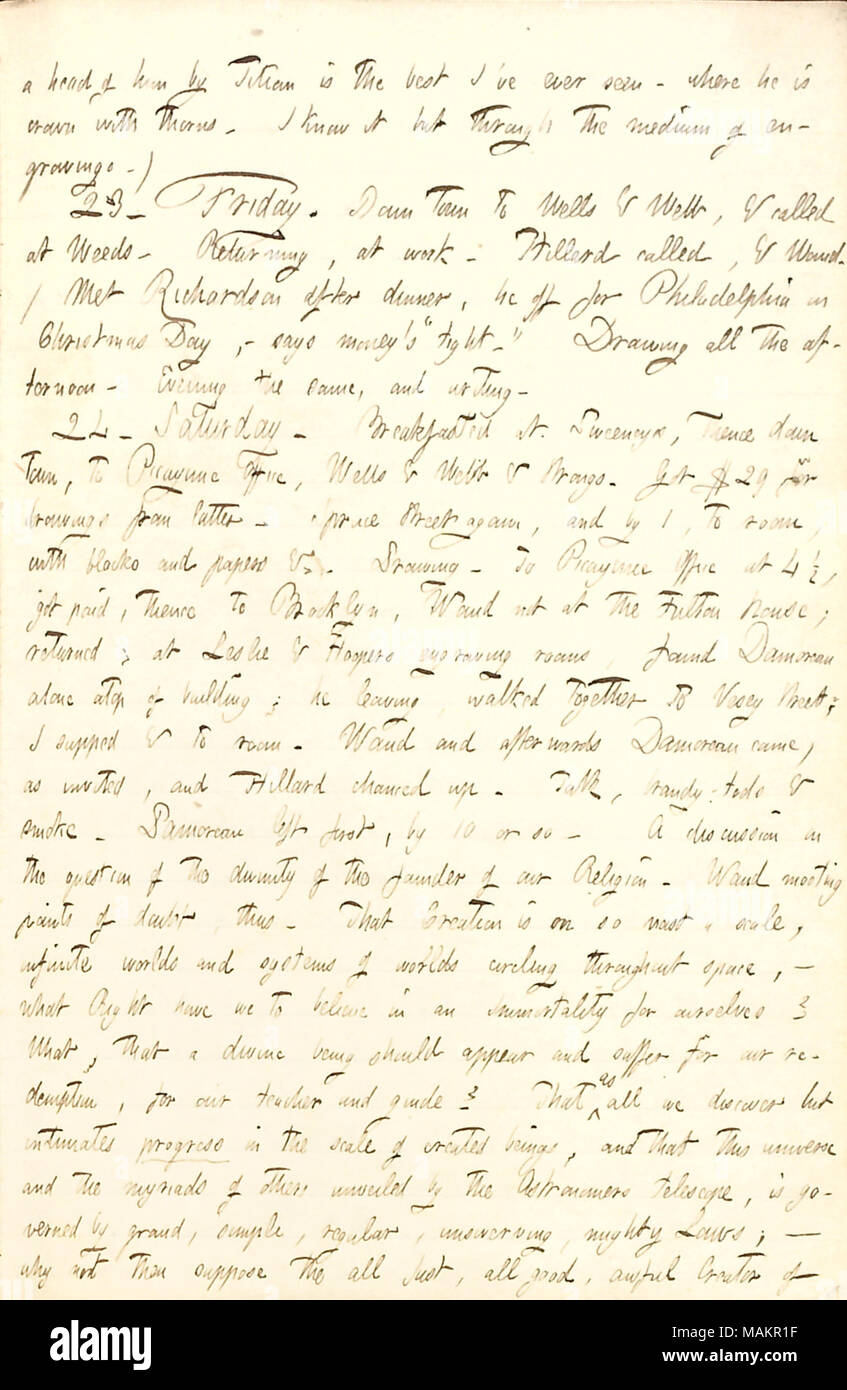 a head of him by Titian is the best I've ever seen - where he is
crown with thorns. I know it but through the medium of en-
gravings -)
23 - Friday. Down town to Wells & Webb, & called
at Weeds - Returning, at work - Hillard called, & Waud.
/ Met Richardson after dinner, he off for Philadelphia on
Christmas Day, - says money's "tight -" Drawing all the af-
ternoon - Evening the same, and writing -
24 - Saturday - Breakfasted at Sweeneys, thence down
town, to Picayune Office, Wells & Webb & Strongs. Got $29 for
drawings from latter - Spruce Street again, and by 1, to room,
with blocks and papers &c. Drawing - To Picayune Office at 4 ½,
got paid, thence to Brooklyn, Waud not at the Fulton House;
returned; at Leslie & Hoopers engraving rooms, found Damoreau
alone atop of building; he leaving, walked together to Vesey Street;
I supped & to room - Waud and afterwards Damoreau came,
as invited, and Hillard chanced up - Talk, brandy-tods &
smoke - Damoreau left first, by 10 or so - A discussion on
the question of the divinity of the founder of our Religion - Waud mooting
points of doubt, thus - That Creation is on so vast a scale,
infinite worlds and systems of worlds circling throughout space, -
what Right have we to believe in an Immortality for ourselves?
What, that a divine being should appear and suffer for our re-
demption, for our teacher and guide? That as all we discover but
intimates progress in the scale of created beings, and that this universe
and the myriads of others unveiled by the Astronomers telescope, is go-
verned by grand, simple, regular, unswerving, mighty Laws; -
why not then suppose the all just, all good, awful Creator of
alamy
Image ID: MAKR1F
www.alamy.com